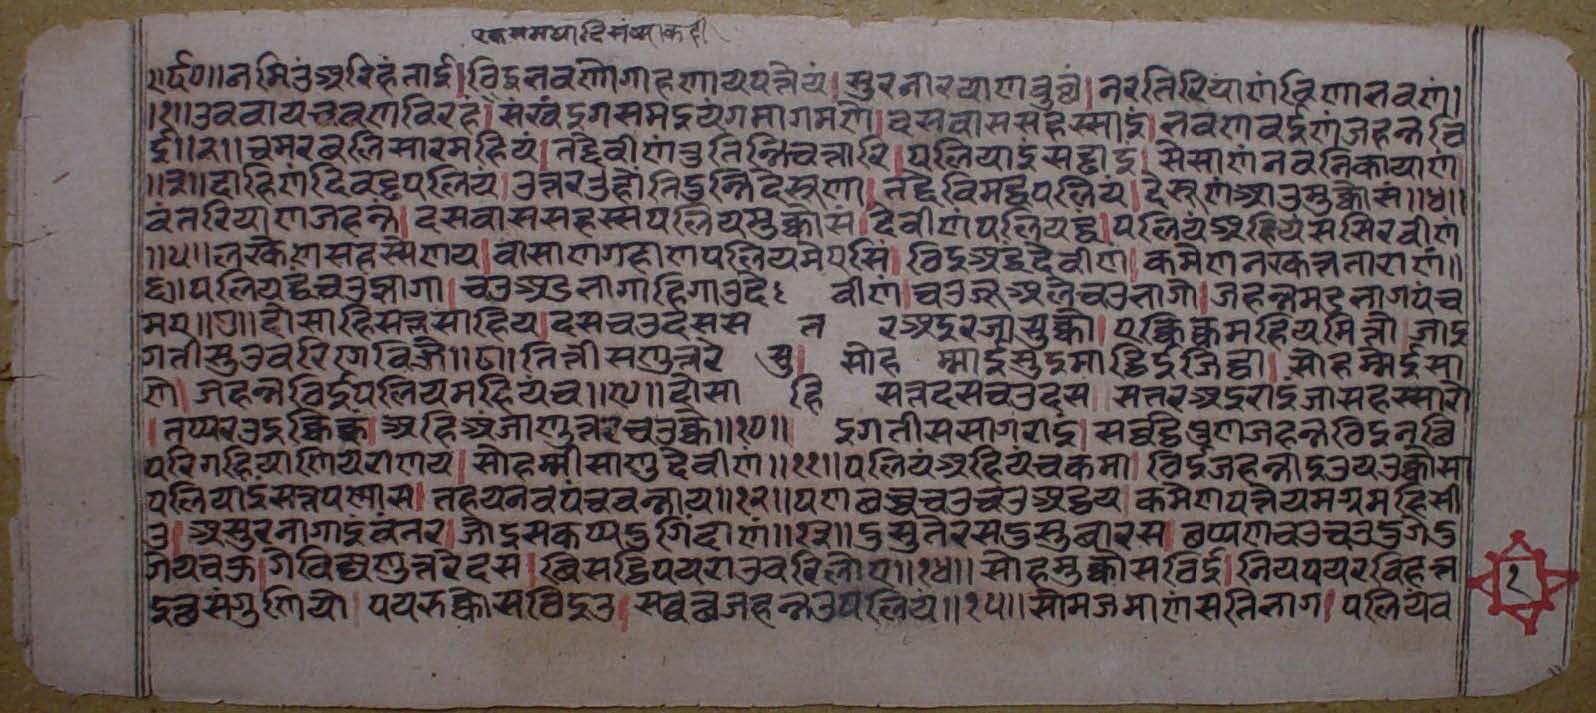 एक समयादि संख्या कही
॥र्द०॥नमिउं अरिहंताई।ठिइभवणोगाहणायपत्तेयं।सुरनारयाणवुच्छं।नरतिरियाणंविणाभवणं।
॥१॥उववायचवणविरहं।संखंइगसमइयंगमागमणे।दसवाससहस्साइं।भवणवईणंजहन्नठि
ई॥२॥चमरबलिसारमहियं।तद्देवीणंतुतिन्निचत्तारि।पलियाइसड्ढाइं।सेसाणंनवनिकायाणं
॥३॥दाहिणदिवड्ढपलियं।उत्तरउहोंतिदुन्निदेसूणा।तद्देविमद्धपलियं।देसूणंआउमुक्कोसं॥४॥
वंतरियाणजहन्नं।दसवाससहस्सपलियमुक्कोसं।देवीणंपलियद्धं।पलियंअहियंससिरवीणं
॥५॥लरकेणसहस्सेणय।वासाणगहाणपलियमेएसिं।ठिइअद्धंदेवीणं।कमेणनरकत्तताराणं॥
६॥पलियद्धंचउभागो।चउअडभागाहिगाउदे वीणं।चउजुअलेचउभागो।जहन्नमडभागपंच
मए॥७॥दोसाहिसत्तसाहिय।दसचउदसस त्त रअइरजासुक्को।एक्किक्कमहियमित्तो।जाइ
गतीसुउवरिगेविज्जे॥८॥तित्तीसणुत्तरे सु।सोह म्माईसुइमाठिईजिट्ठा।सोहम्मेईसा
णे।जहन्नठिईपलियमहियंच॥९॥दोसा हि सत्तदसचउदस सत्तरअइराइंजासहस्सारो
।तप्परउइक्किक्कं।अहिअंजाणुत्तरचउक्के॥१०॥ इगतीससागराइं।सव्वट्ठेपुणजहन्नठिइनत्थि
परिगहियाणियराणय।सोहम्मीसाणुदेवीणं॥११॥पलियंअहियंचकमा।ठिईजहन्नाइउयउक्कोसा
पलियाइसत्तपन्नास।तहयनवपंचवन्नाय॥१२॥पणछच्चचउचउअट्ठय।कमेणपत्तेयमग्गमहिसी
उ।असुरनागाइवंतर।जोइसकप्पदुगिंदाणं॥१३॥दुसुतेरसदुसुबारस।छप्पणचउचउदुगेदु
गेयचऊ।गेविज्जणुत्तरेदस।बिसट्ठिपयराउवरिलोए॥१४॥सोहमुक्कोसठिई।नियपयरविहत्त
इच्छसंगुणियो।पयरुक्कोसठिइउ।सव्वत्थजहन्नउपलियं॥१५॥सोमजमाणंसतिभाग।पलियंव
१